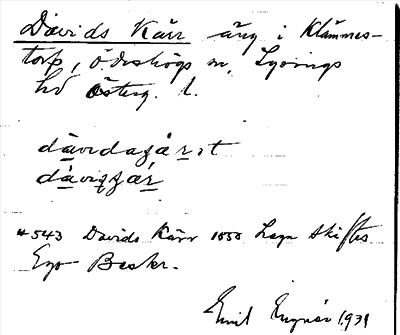 Davids Kärr äng i Klämmes-
torp, Ödeshögs sn, Lysings
hd Österg. l.
davidaʒärət
daviʒʒär
#543 Davids Kärr 1850 Laga Skiftes
Ego Beskr.
Emil 1931